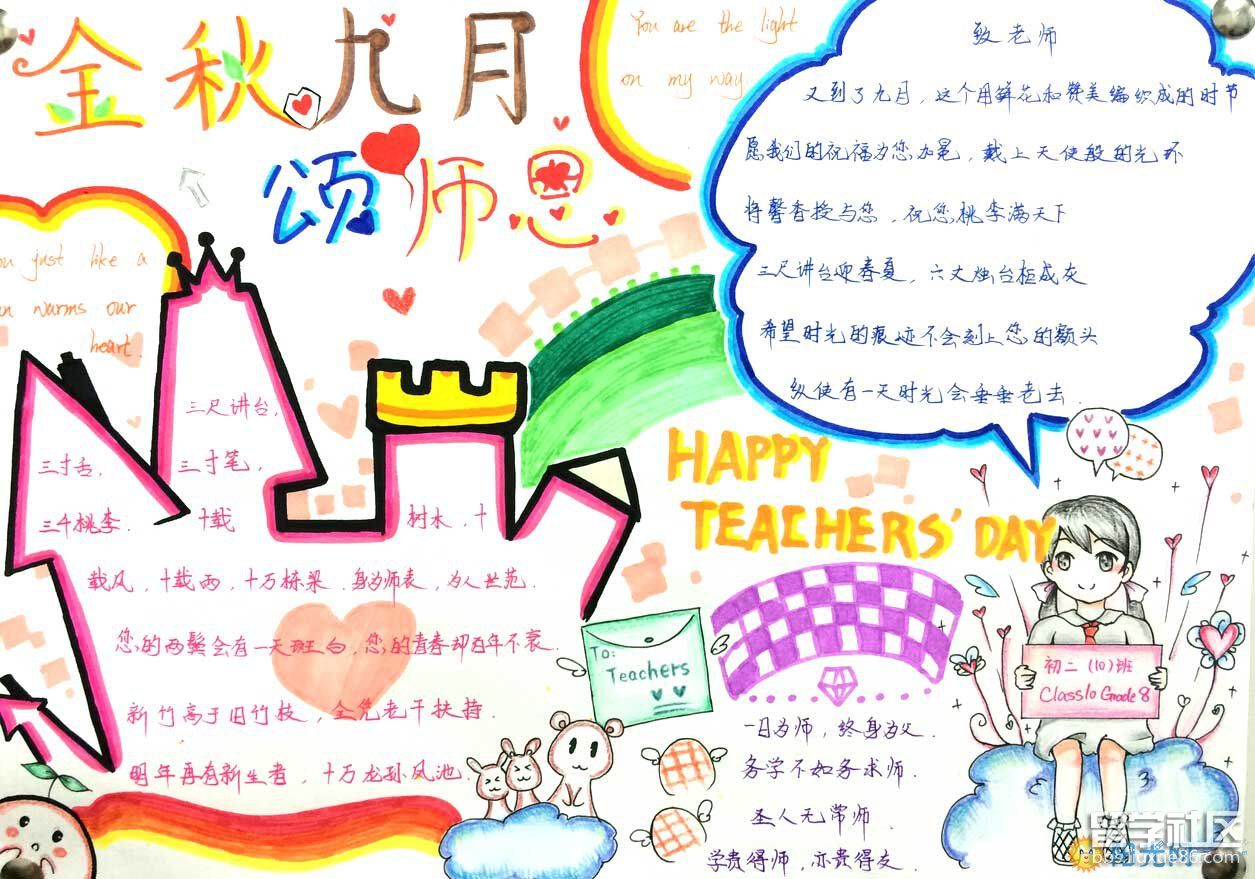 金秋九月
颂师恩
You are the light
on my way
致老师
又到了九月，这个用鲜花和赞美编织成的时节
愿我们的祝福为您加冕，戴上天使般的光环
将馨香授与您，祝您桃李满天下
三尺讲台迎春夏，六丈烛台柜成灰
希望时光的痕迹不会刻上您的额头
纵使有一天时光会垂垂老去.
ou just like a
un warms our
heart.
三尺讲台，
三寸舌，
三寸笔，
三千桃李.
十载
树木，十
载风，十载雨，十万栋梁.身为师表，为人世范.
您的两鬓会有一天斑白，您的青春却百年不衰.
新竹高于旧竹枝，全凭老干扶持.
明年再有新生者，十万龙孙凤池.
HAPPY
TEACHERS' DAY
To:
Teachers
初二(10)班
Class10 Grade8
一日为师，终身为父.
务学不如务求师.
圣人无常师.
学贵得师，亦贵得友.
留学社区
bbs.liuxue86.com